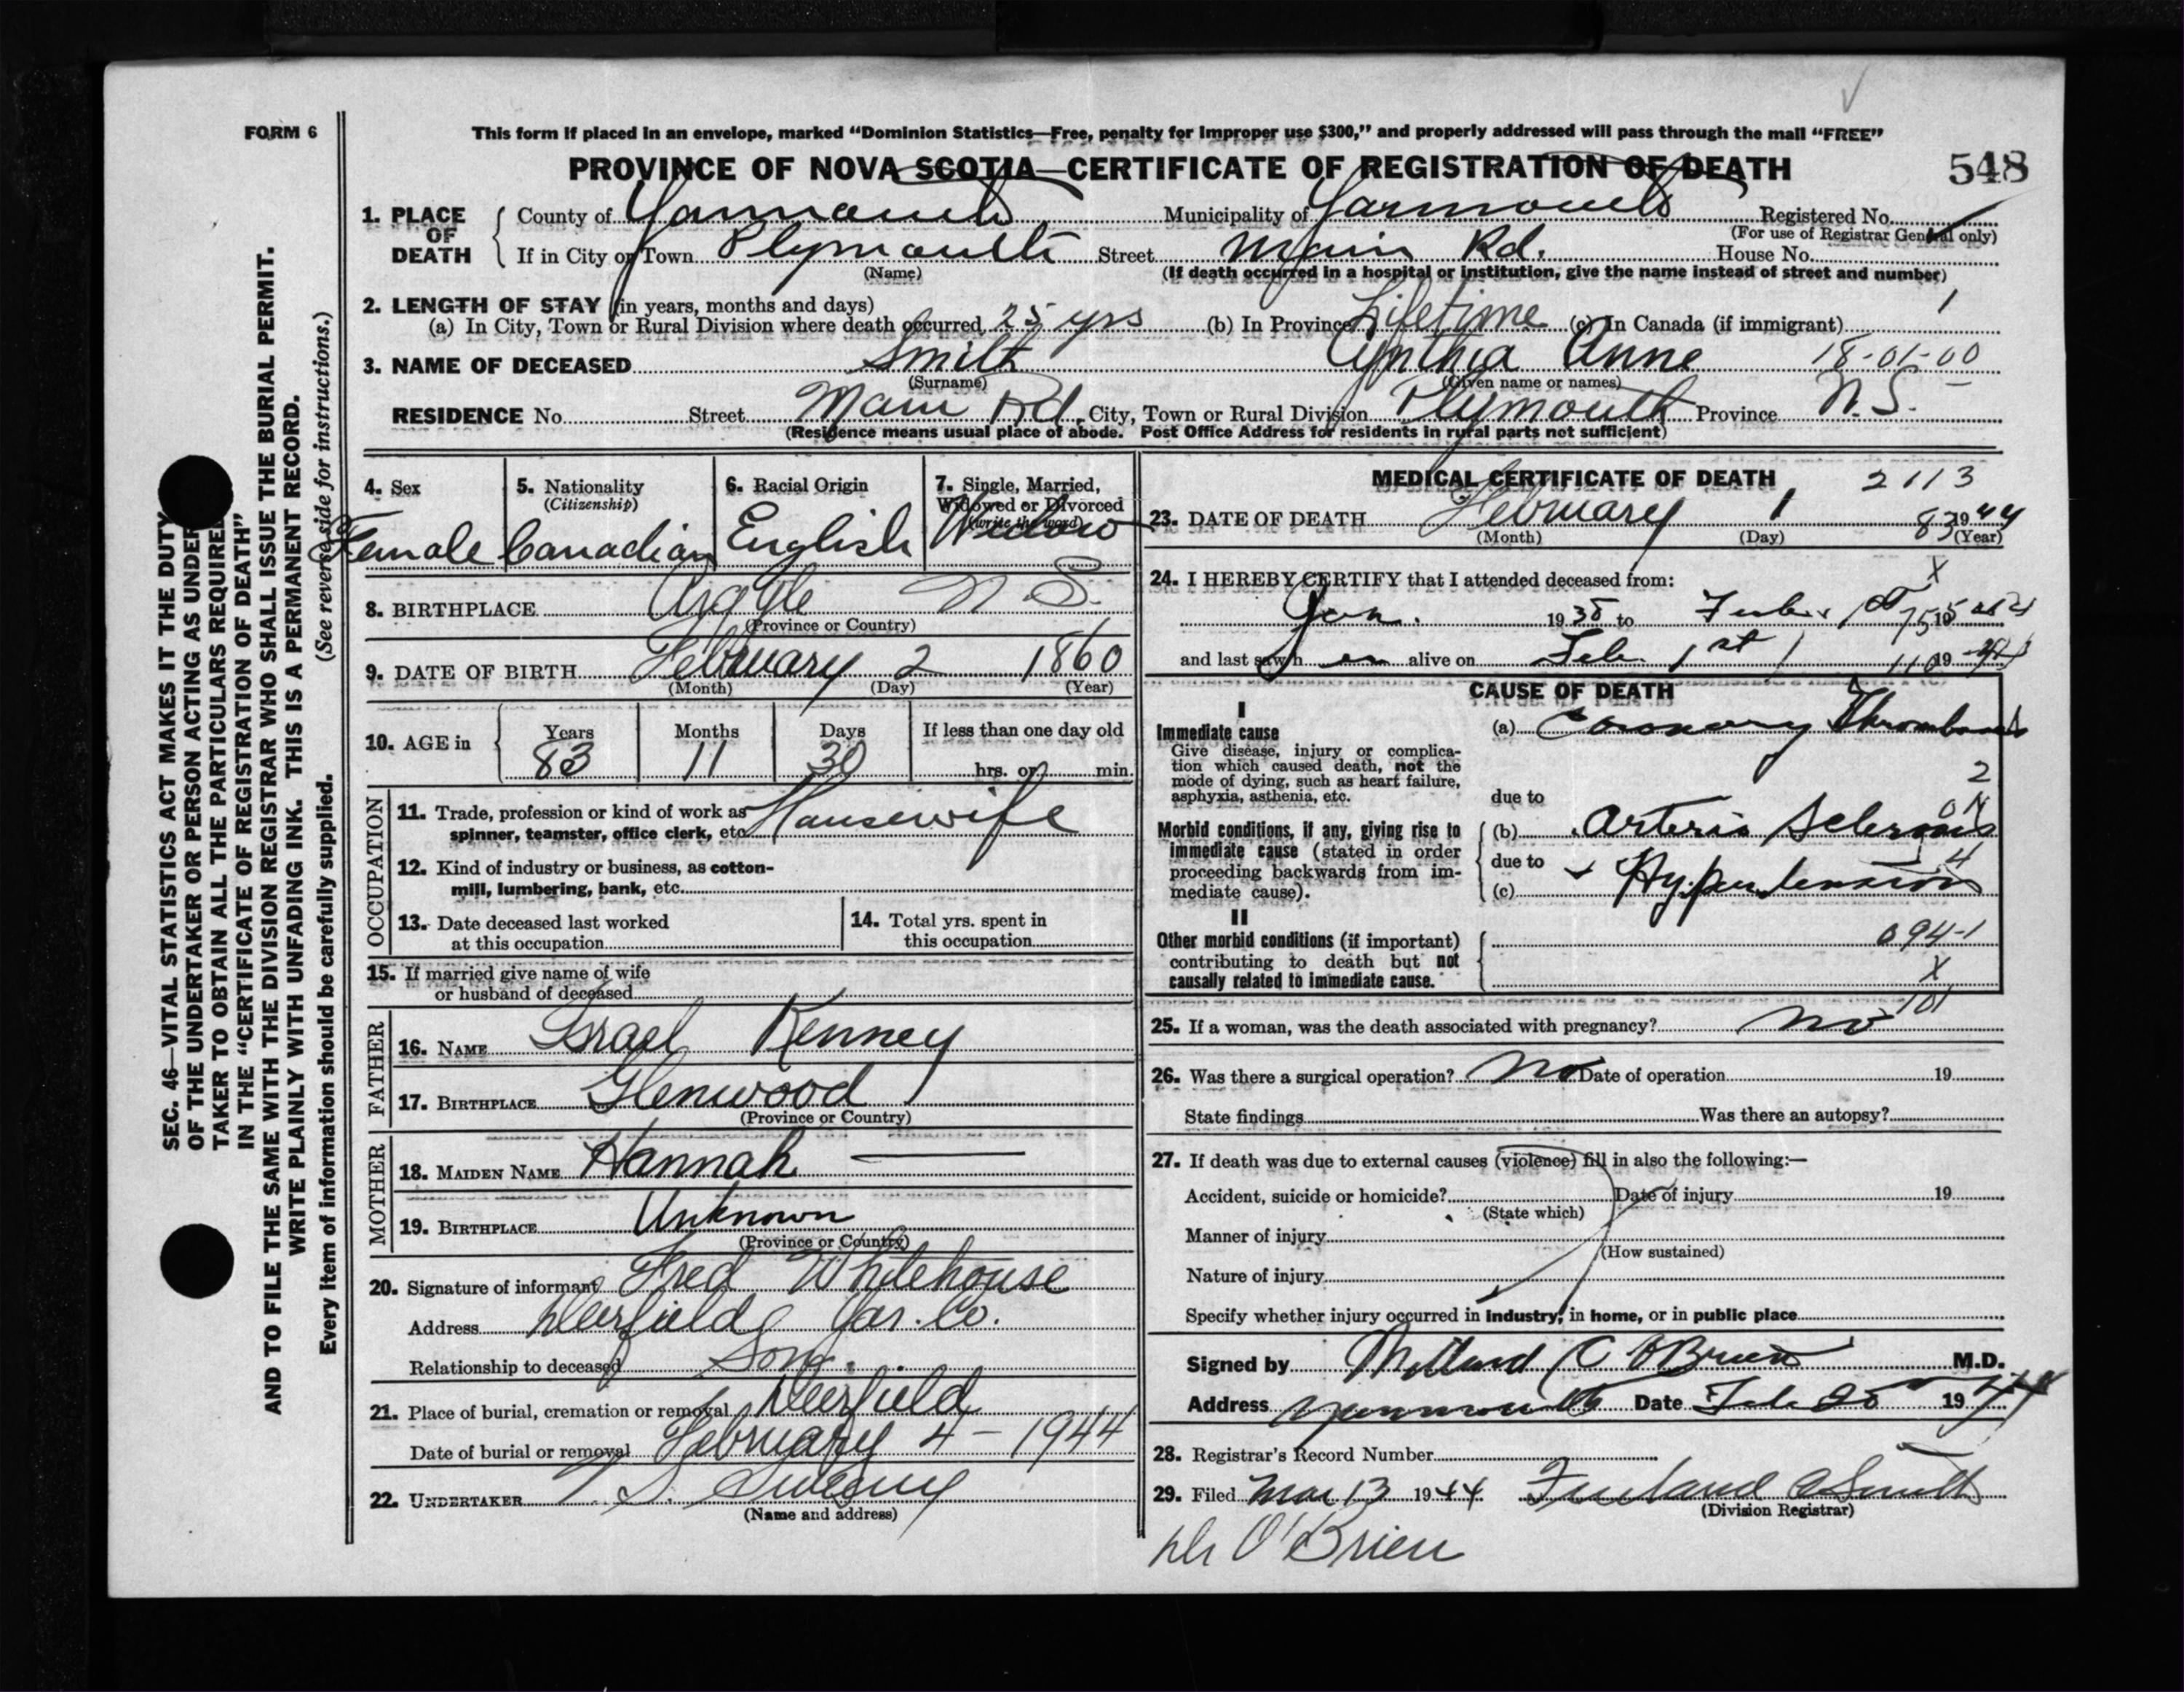 FORM 6
This form if placed in an envelope, marked “Dominion Statistics—Free, penalty for improper use $300,” and properly addressed will pass through the mail “FREE”
PROVINCE OF NOVA SCOTIA—CERTIFICATE OF REGISTRATION OF DEATH
548
1. PLACE OF DEATH
County of Yarmouth Municipality of Yarmouth Registered No.
(For use of Registrar General only)
If in City or Town Plymouth Street Main Rd. House No.
(Name) (If death occurred in a hospital or institution, give the name instead of street and number)
2. LENGTH OF STAY (in years, months and days)
(a) In City, Town or Rural Division where death occurred 25 yrs (b) In Province Lifetime (c) In Canada (if immigrant)
3. NAME OF DECEASED Smith Cynthia Anne 18-01-00
(Surname) (Given name or names)
RESIDENCE No. Street Main Rd. City, Town or Rural Division Plymouth Province N.S.
(Residence means usual place of abode. Post Office Address for residents in rural parts not sufficient)
SEC. 46—VITAL STATISTICS ACT MAKES IT THE DUTY
OF THE UNDERTAKER OR PERSON ACTING AS UNDER
TAKER TO OBTAIN ALL THE PARTICULARS REQUIRED
IN THE “CERTIFICATE OF REGISTRATION OF DEATH”
AND TO FILE THE SAME WITH THE DIVISION REGISTRAR WHO SHALL ISSUE THE BURIAL PERMIT.
WRITE PLAINLY WITH UNFADING INK. THIS IS A PERMANENT RECORD.
Every item of information should be carefully supplied. (See reverse side for instructions.)
4. Sex
Female
5. Nationality
(Citizenship)
Canadian
6. Racial Origin
English
7. Single, Married,
Widowed or Divorced
(write the word)
Widow
8. BIRTHPLACE Argyle N.S.
(Province or Country)
9. DATE OF BIRTH February 2 1860
(Month) (Day) (Year)
10. AGE in
Years Months Days If less than one day old
83 11 30 hrs. or min.
OCCUPATION
11. Trade, profession or kind of work as
spinner, teamster, office clerk, etc. Housewife
12. Kind of industry or business, as cotton-
mill, lumbering, bank, etc.
13. Date deceased last worked
at this occupation
14. Total yrs. spent in
this occupation
15. If married give name of wife
or husband of deceased
FATHER
16. NAME Israel Kenney
17. BIRTHPLACE Glenwood
(Province or Country)
MOTHER
18. MAIDEN NAME Hannah —
19. BIRTHPLACE Unknown
(Province or Country)
20. Signature of informant Fred Whitehouse
Address Deerfield Yar. Co.
Relationship to deceased Son.
21. Place of burial, cremation or removal Deerfield
Date of burial or removal February 4 - 1944
22. UNDERTAKER S. Sweeny
(Name and address)
MEDICAL CERTIFICATE OF DEATH 2113
23. DATE OF DEATH February 1 1944
(Month) (Day) 83 (Year)
24. I HEREBY CERTIFY that I attended deceased from: X
Jan. 1938 to 19
and last saw h er alive on Feb. 1st 19 44
CAUSE OF DEATH
I
Immediate cause
Give disease, injury or complica-
tion which caused death, not the
mode of dying, such as heart failure,
asphyxia, asthenia, etc.
(a) Coronary Thrombosis
2
due to
Morbid conditions, if any, giving rise to
immediate cause (stated in order
proceeding backwards from im-
mediate cause).
(b) Arterio Sclerosis
due to
(c) + Hypertension
4
II
Other morbid conditions (if important)
contributing to death but not
causally related to immediate cause.
094-1
X
101
25. If a woman, was the death associated with pregnancy? no
26. Was there a surgical operation? No Date of operation 19
State findings Was there an autopsy?
27. If death was due to external causes (violence) fill in also the following:—
Accident, suicide or homicide? Date of injury 19
(State which)
Manner of injury
(How sustained)
Nature of injury
Specify whether injury occurred in industry, in home, or in public place
Signed by Millard C O'Brien M.D.
Address Yarmouth Date Feb 25 1944
28. Registrar's Record Number
29. Filed Mar 13 1944 Smith
(Division Registrar)
Dr O'Brien